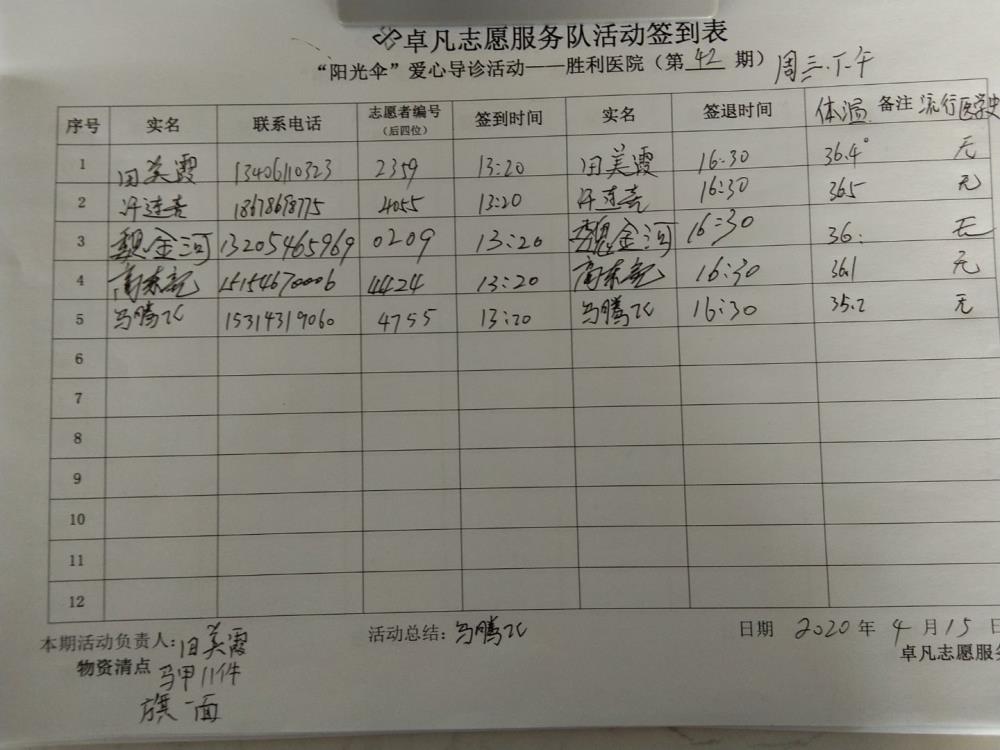 卓凡志愿服务队活动签到表
“阳光伞”爱心导诊活动——胜利医院（第 42 期）周三.下午
序号 实名 联系电话 志愿者编号（后四位） 签到时间 实名 签退时间 体温 备注 流行医学史
1 田美霞 13406110323 2359 13:20 田美霞 16:30 36.4° 无
2 许连喜 18678698775 4055 13:20 许连喜 16:30 365 无
3 魏金河 13205465969 0209 13:20 魏金河 16:30 36: 无
4 高东 15154670006 4424 13:20 高东 16:30 36.1 无
5 马腾飞 15314319060 4755 13:20 马腾飞 16:30 35.2 无
6
7
8
9
10
11
12
本期活动负责人：田美霞 活动总结：马腾飞 日期 2020 年 4 月 15 日
物资清点 马甲11件 卓凡志愿服务
旗一面